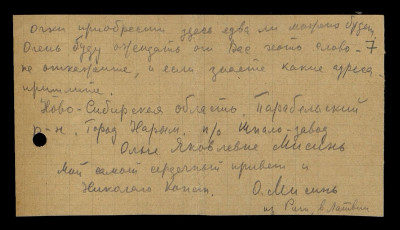 Очки приобрести здесь едва ли можно будет
Очень буду ожидать от Вас хоть слово - 7
не откажите, и если знаете какие адреса
пришлите.
Ново-Сибирская область, Парабельский
р-н. Город Нарым. п/о Шпало-завод
Ольге Яковлевне Мисинь
Мой самый сердечный привет и
Николаю Конст. О. Мисинь
из Риги в Латвии